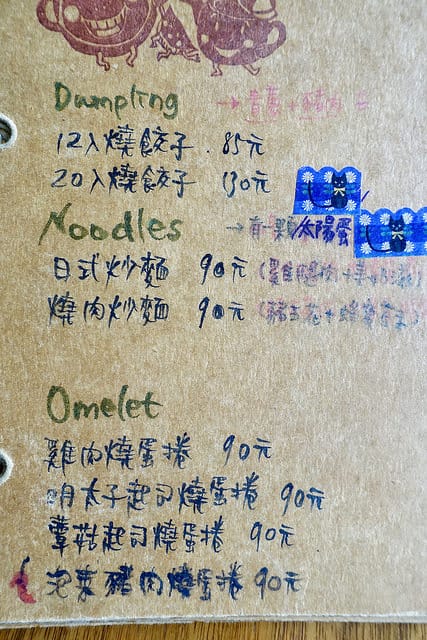 Dumpling → 韭黃+豬肉
12入燒餃子. 85元
20入燒餃子 130元
Noodles → 有一顆太陽蛋
日式炒麵 90元 (雞腿肉+
燒肉炒麵 90元 (豬五花+
Omelet
雞肉燒蛋捲 90元
明太子起司燒蛋捲 90元
蕈菇起司燒蛋捲 90元
泡菜豬肉燒蛋捲 90元